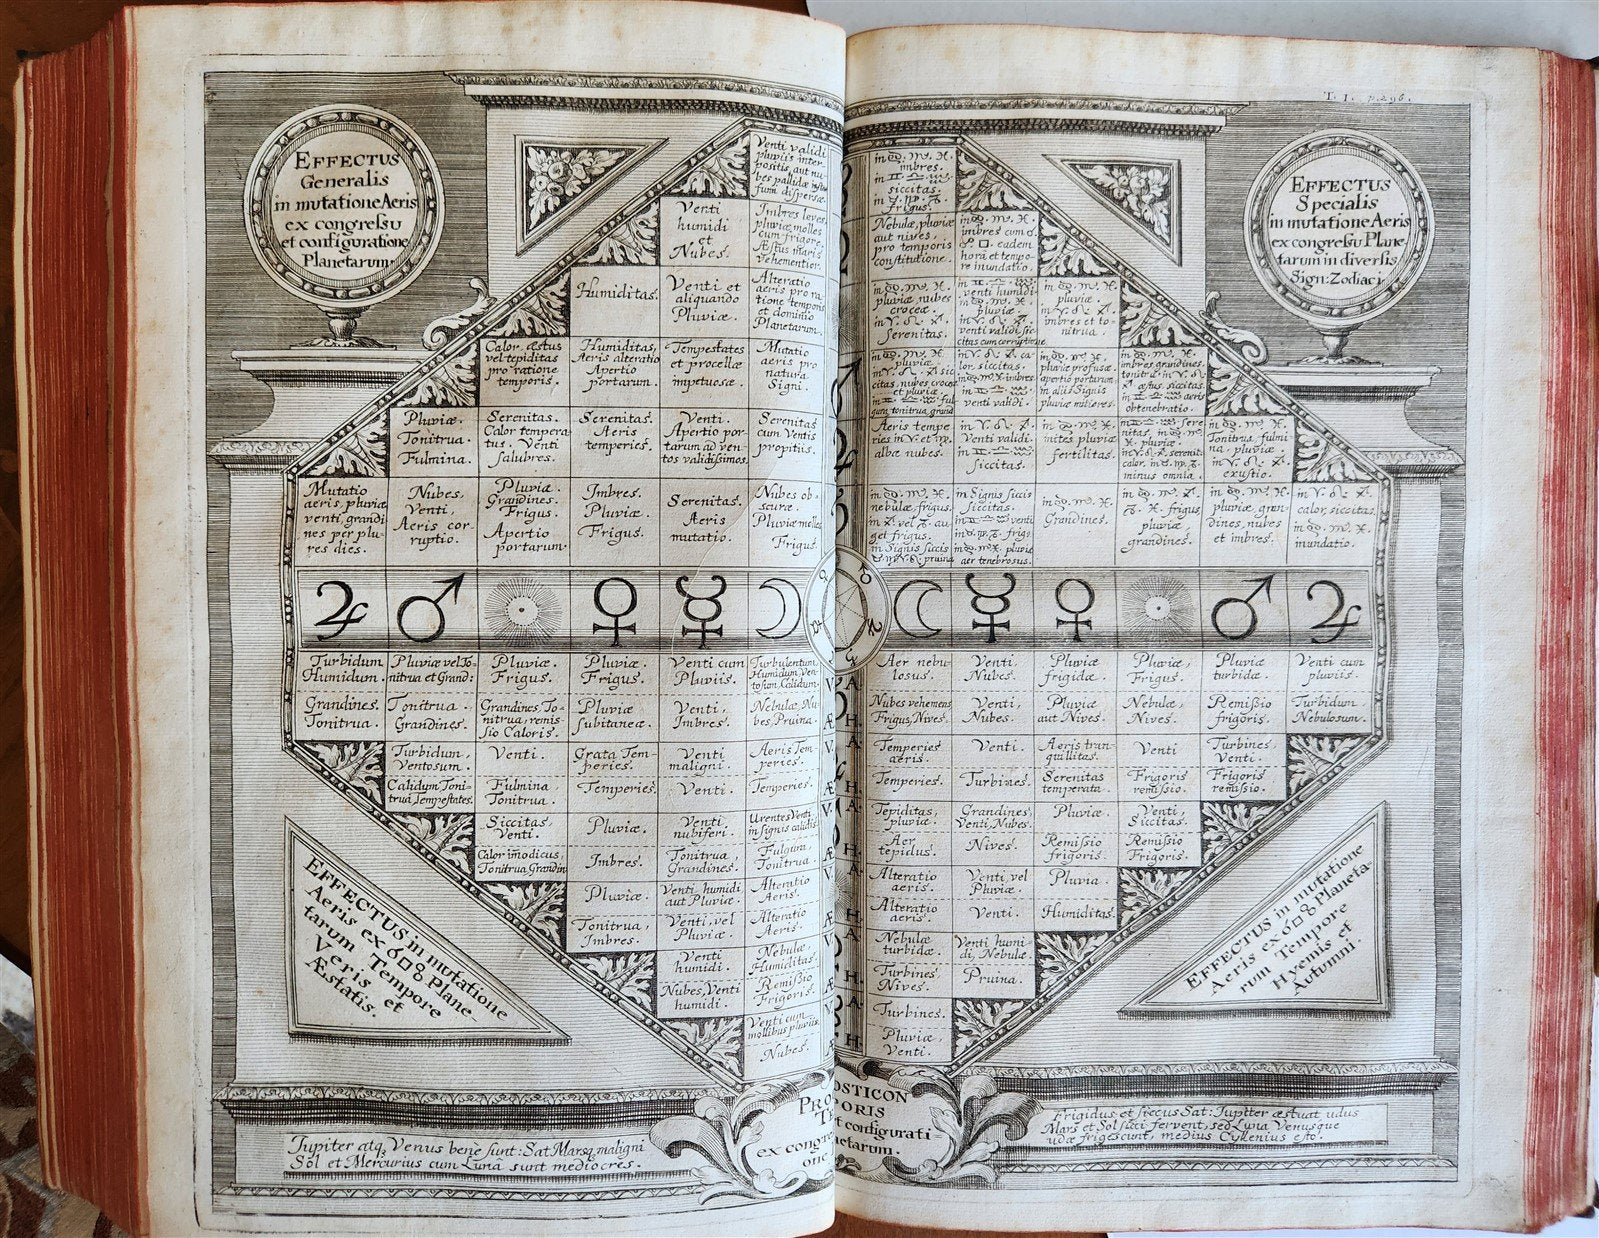 T. I. p. 296.
EFFECTUS
Generalis
in mutatione Aeris
ex congressu
et configuratione
Planetarum.
EFFECTUS
Specialis
in mutatione Aeris
ex congressu Plane-
tarum in diversis
Sign: Zodiaci
Venti validi
pluviis inter-
positis, aut nu-
bes pallidæ
sum dispersæ.
Venti
humidi
et
Nubes.
Imbres leves,
pluviæ molles
cum frigore,
Æstus maris
vehementior.
Humiditas.
Venti et
aliquando
Pluviæ.
Alteratio
aeris pro ra-
tione temporis
et dominio
Planetarum.
Calor, æstus
vel tepiditas
pro ratione
temporis.
Humiditas,
Aeris alteratio
Apertio
portarum.
Tempestates
et procellæ
impetuosæ.
Mutatio
aeris pro
natura
Signi.
Pluviæ.
Tonitrua.
Fulmina.
Serenitas.
Calor tempera-
tus. Venti
salubres.
Serenitas.
Aeris
temperies.
Venti.
Apertio por-
tarum ad ven-
tos validissimos.
Serenitas
cum Ventis
propitiis.
Mutatio
aeris, pluviæ,
venti, grandi-
nes per plu-
res dies.
Nubes,
Venti,
Aeris cor-
ruptio.
Pluviæ.
Grandines.
Frigus.
Apertio
portarum
Imbres.
Pluviæ.
Frigus.
Serenitas.
Aeris
mutatio.
Nubes ob-
scuræ.
Pluviæ molles
Frigus.
in ♋. ♏. ♓.
imbres.
in ♊. ♎. ♒.
siccitas.
in ♉. ♍. ♑.
frigus.
Nebulæ, pluviæ
aut nives,
pro temporis
constitutione.
in ♋. ♏. ♓.
imbres cum ☌.
☍. □. eadem
hora et tempo-
re inundatio.
in ♋. ♏. ♓.
pluviæ, nubes
croceæ.
in ♈. ♌. ♐.
Serenitas.
in ♊. ♎. ♒.
venti humidi
in ♋. ♏. ♓.
pluviæ.
in ♈. ♌. ♐.
venti validi sic-
citas cum corruptione
in ♋. ♏. ♓.
pluviæ.
in ♈. ♌. ♐.
imbres et to-
nitrua.
in ♋. ♏. ♓.
pluviæ.
in ♈. ♌. ♐ sic-
citas, nubes croceæ
et pluviæ.
in ♊. ♎. ♒ ful-
gura, tonitrua, grand
in ♈. ♌. ♐ ca-
lor, siccitas.
in ♋. ♏. ♓. imbres.
in ♊. ♎. ♒
venti validi.
in ♋. ♏. ♓.
pluviæ profusæ,
apertio portarum.
in aliis Signis
pluviæ miliores.
in ♋. ♏. ♓.
imbres, grandines,
tonitrua. in ♈. ♌.
♐ æstus, siccitas.
in ♊. ♎. ♒ aeris
obtenebratio.
Aeris tempe-
ries in ♈. et ♍.
albæ nubes.
in ♈. ♌. ♐.
Venti validi.
in ♊. ♎. ♒
siccitas.
in ♋. ♏. ♓.
mites pluviæ
fertilitas.
in ♋. ♏. ♓.
Tonitrus, fulmi-
na, pluviæ.
in ♈. ♌. ♐.
exustio.
in ♋. ♏. ♓.
nebulæ, frigus.
in ♐ vel ♑. au-
get frigus.
in Signis siccis
in Signis siccis
Siccitas.
in ♊ ♎ ♒ venti
in ♉. ♍. ♑. frigs
in ♋. ♏. ♓. pluviæ
aer tenebrosus.
in ♋. ♏. ♓.
Grandines.
frigus,
pluviæ,
grandines.
in ♋. ♏. ♓.
pluviæ, gran-
dines, nubes
et imbres.
in ♈. ♌. ♐.
calor, siccitas.
in ♋. ♏. ♓.
inundatio.
♃ ♂ ♀ ☿ ☽
☾ ☿ ♀ ♂ ♃
Turbidum
Humidum.
Pluviæ vel To-
nitrua et Grand:
Pluviæ.
Frigus.
Pluviæ.
Frigus.
Venti cum
Pluviis.
Turbulentum,
Humidum, Ven-
tosum, Calidum.
Grandines.
Tonitrua.
Tonitrua.
Grandines.
Grandines, To-
nitrua, remis-
sio Caloris.
Pluviæ
subitaneæ.
Venti,
Imbres.
Nebulæ, Nu-
bes, Pruina.
Turbidum,
Ventosum.
Venti.
Grata Tem-
peries.
Venti
maligni.
Aeris Tem-
peries.
Calidum, Toni-
trua, Tempestates.
Fulmina
Tonitrua.
Temperies.
Venti.
Temperies.
Siccitas,
Venti.
Pluviæ.
Venti
nubiferi.
Urentes Venti
in signis calidis.
Calor immodicus,
Tonitrua, Grandin
Imbres.
Tonitrua,
Grandines.
Fulgura,
Tonitrua.
Pluviæ.
Venti humidi
aut Pluviæ.
Alteratio
Aeris.
Tonitrua,
Imbres.
Venti, vel
Pluviæ.
Alteratio
Aeris.
Venti
humidi.
Nebulæ,
Humiditas.
Nubes, Venti
humidi.
Remissio
Frigoris.
Venti cum
mollibus pluviis.
Nubes.
Aer nebu-
losus.
Venti,
Nubes.
Pluviæ
frigidæ.
Pluviæ,
Frigus.
Pluviæ
turbidæ.
Venti cum
pluviis.
Nubes vehemens
Frigus, Nives.
Venti,
Nubes.
Pluviæ
aut Nives.
Nebulæ,
Nives.
Remissio
frigoris.
Turbidum,
Nebulosum.
Temperies
aeris.
Venti.
Aeris tran-
quillitas.
Venti
Turbines,
Venti.
Temperies.
Turbines.
Serenitas
temperata.
Frigoris
remissio.
Frigoris
remissio.
Tepiditas,
pluviæ.
Grandines,
Venti, Nubes.
Pluviæ.
Venti,
Siccitas.
Aer
tepidus.
Nives.
Remissio
frigoris.
Remissio
Frigoris.
Alteratio
aeris.
Venti, vel
Pluviæ.
Pluvia.
Alteratio
aeris.
Venti.
Humiditas.
Nebulæ
turbidæ.
Venti humi-
di, Nebulæ.
Turbines
Nives.
Pruina.
Turbines.
Pluviæ,
Venti.
EFFECTUS in mutatione
Aeris ex ☌ □ ☍ Plane-
tarum Tempore
Veris et
Æstatis.
EFFECTUS in mutatione
Aeris ex ☌ □ ☍ Planeta-
rum Tempore
Hyemis et
Autumni.
PRO OSTICON
TE ORIS
ex congre t configurati-
one netarum.
Jupiter atq; Venus bene sunt: Sat Marsq; maligni
Sol et Mercurius cum Luna sunt mediocres.
Frigidus et siccus Sat: Jupiter æstuat udus
Mars et Sol sicci fervent, sed Luna Venusque
udæ frigescunt, medius Cyllenius esto.